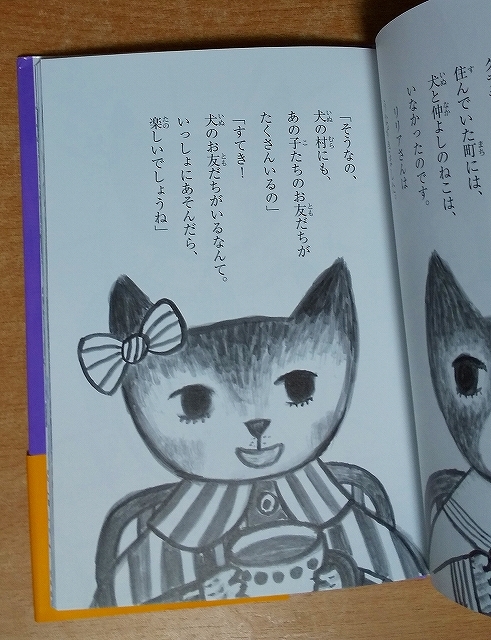 住んでいた町には、
犬と仲よしのねこは、
いなかったのです。
リリアさんは
「そうなの、
犬の村にも、
あの子たちのお友だちが
たくさんいるの」
「すてき！
犬のお友だちがいるなんて。
いっしょにあそんだら、
楽しいでしょうね」